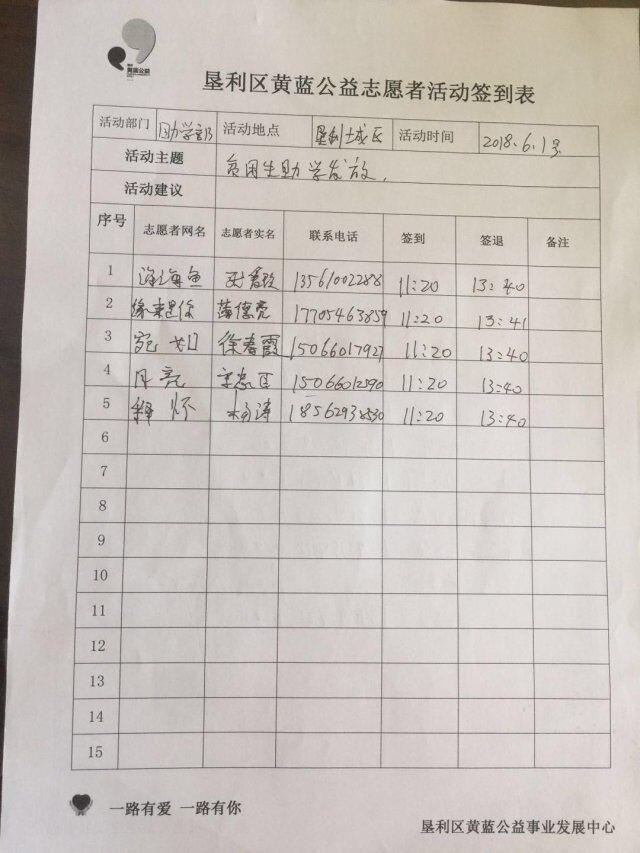 黄蓝公益
垦利区黄蓝公益志愿者活动签到表
活动部门 助学部 活动地点 垦利城区 活动时间 2018.6.13
活动主题 贫困生助学发放.
活动建议
序号 志愿者网名 志愿者实名 联系电话 签到 签退 备注
1 海鱼 13561002288 11:20 13:40
2 缘来是你 薛德亮 17705463859 11:20 13:41
3 宛如 徐春霞 15066017927 11:20 13:40
4 月亮 15066012590 11:20 13:40
5 释怀 杨涛 18562938530 11:20 13:40
6
7
8
9
10
11
12
13
14
15
一路有爱 一路有你
垦利区黄蓝公益事业发展中心